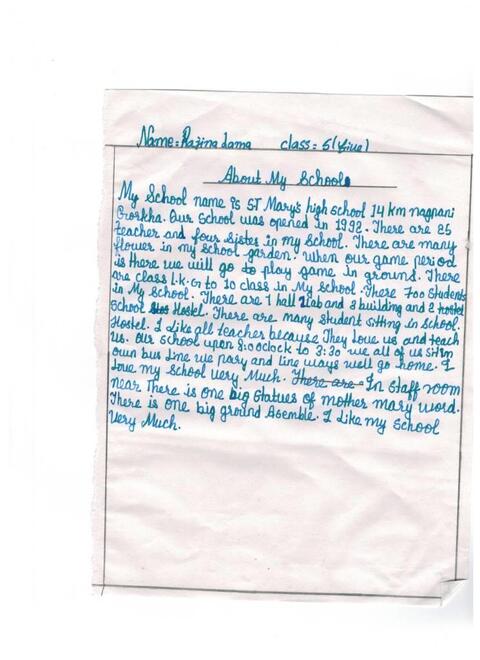 Name: Razina lama class: 5 (five)
About My School
My School name is ST Mary's high school 14 km nagpani
Gorkha. Our School was opened in 1992. There are 25
teacher and four Sister in my School. There are many
flower in my school garden. When our game period
is there we will go to play game in ground. There
are class L.K.G to 10 class in My school. There 700 Students
in My School. There are 1 hall 2lab and 3 building and 2 hostel
School Hostel. There are many student sitting in school.
Hostel. I Like all teacher because They Love us and teach
us. Our School upon 9:00 oclock to 3:30 we all of us sit in
own bus line we pary and line ways well go home. I
Love my School very Much. There are In Staff room
near There is one big statues of mother mary word.
There is one big ground Asemble. I like my School
Very Much.